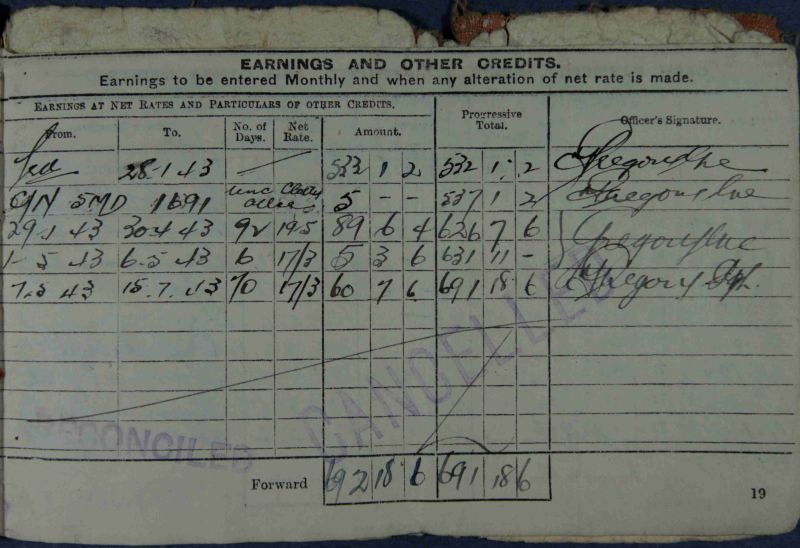 EARNINGS AND OTHER CREDITS.
Earnings to be entered Monthly and when any alteration of net rate is made.
EARNINGS AT NET RATES AND PARTICULARS OF OTHER CREDITS.
From. To. No. of Days. Net Rate. Amount. Progressive Total. Officer's Signature.
28-1 43 532 1 2 532 1 2
C/N 5MD 1691 5 - - 537 1 2
29-1 43 30-4 43 92 19/5 89 6 4 626 7 6
1-5 43 6-5 43 6 17/3 5 3 6 631 11 -
7.5 43 15.7.43 70 17/3 60 7 6 691 18 6
CANCELLED
RECONCILED
Forward 692 18 6 691 18 6
19